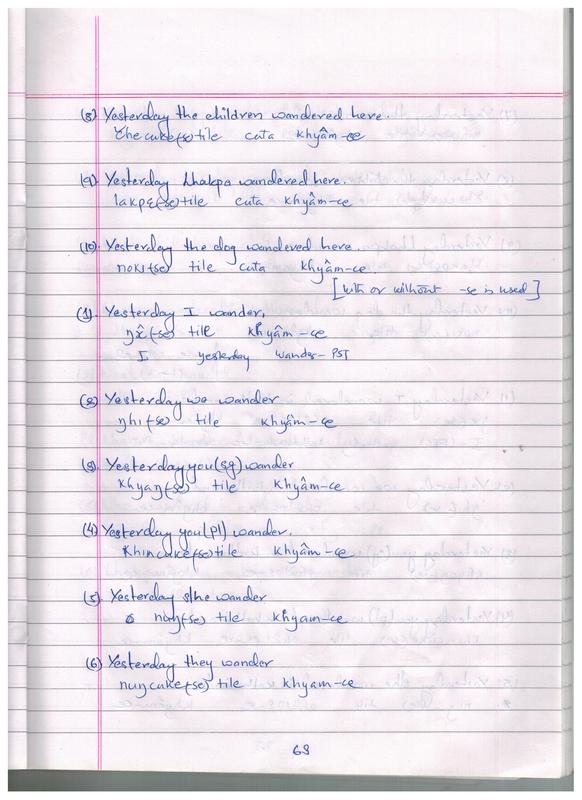 (8) Yesterday the children wandered here.
cuta khyâm-ce
(9). Yesterday Lhakpa wandered here.
lakpɛ(-se) tile cuta khyâm-ce
(10). Yesterday the dog wandered here.
nokı(-se) tile cuta khyâm-ce
[with or without -se is used]
(1). Yesterday I wander.
ŋâ(-se) tile khyâm-ce
I yesterday wander-PST
(2) Yesterday we wander
ŋhı(-se) tile khyâm-ce
(3). Yesterday you(sg) wander
khyaŋ(-se) tile khyâm-ce
(4) Yesterday you(pl) wander.
khincuke(-se) tile khyâm-ce
(5). Yesterday s/he wander
nuŋ(-se) tile khyam-ce
(6) Yesterday they wander
nuŋcuke(-se) tile khyam-ce
68